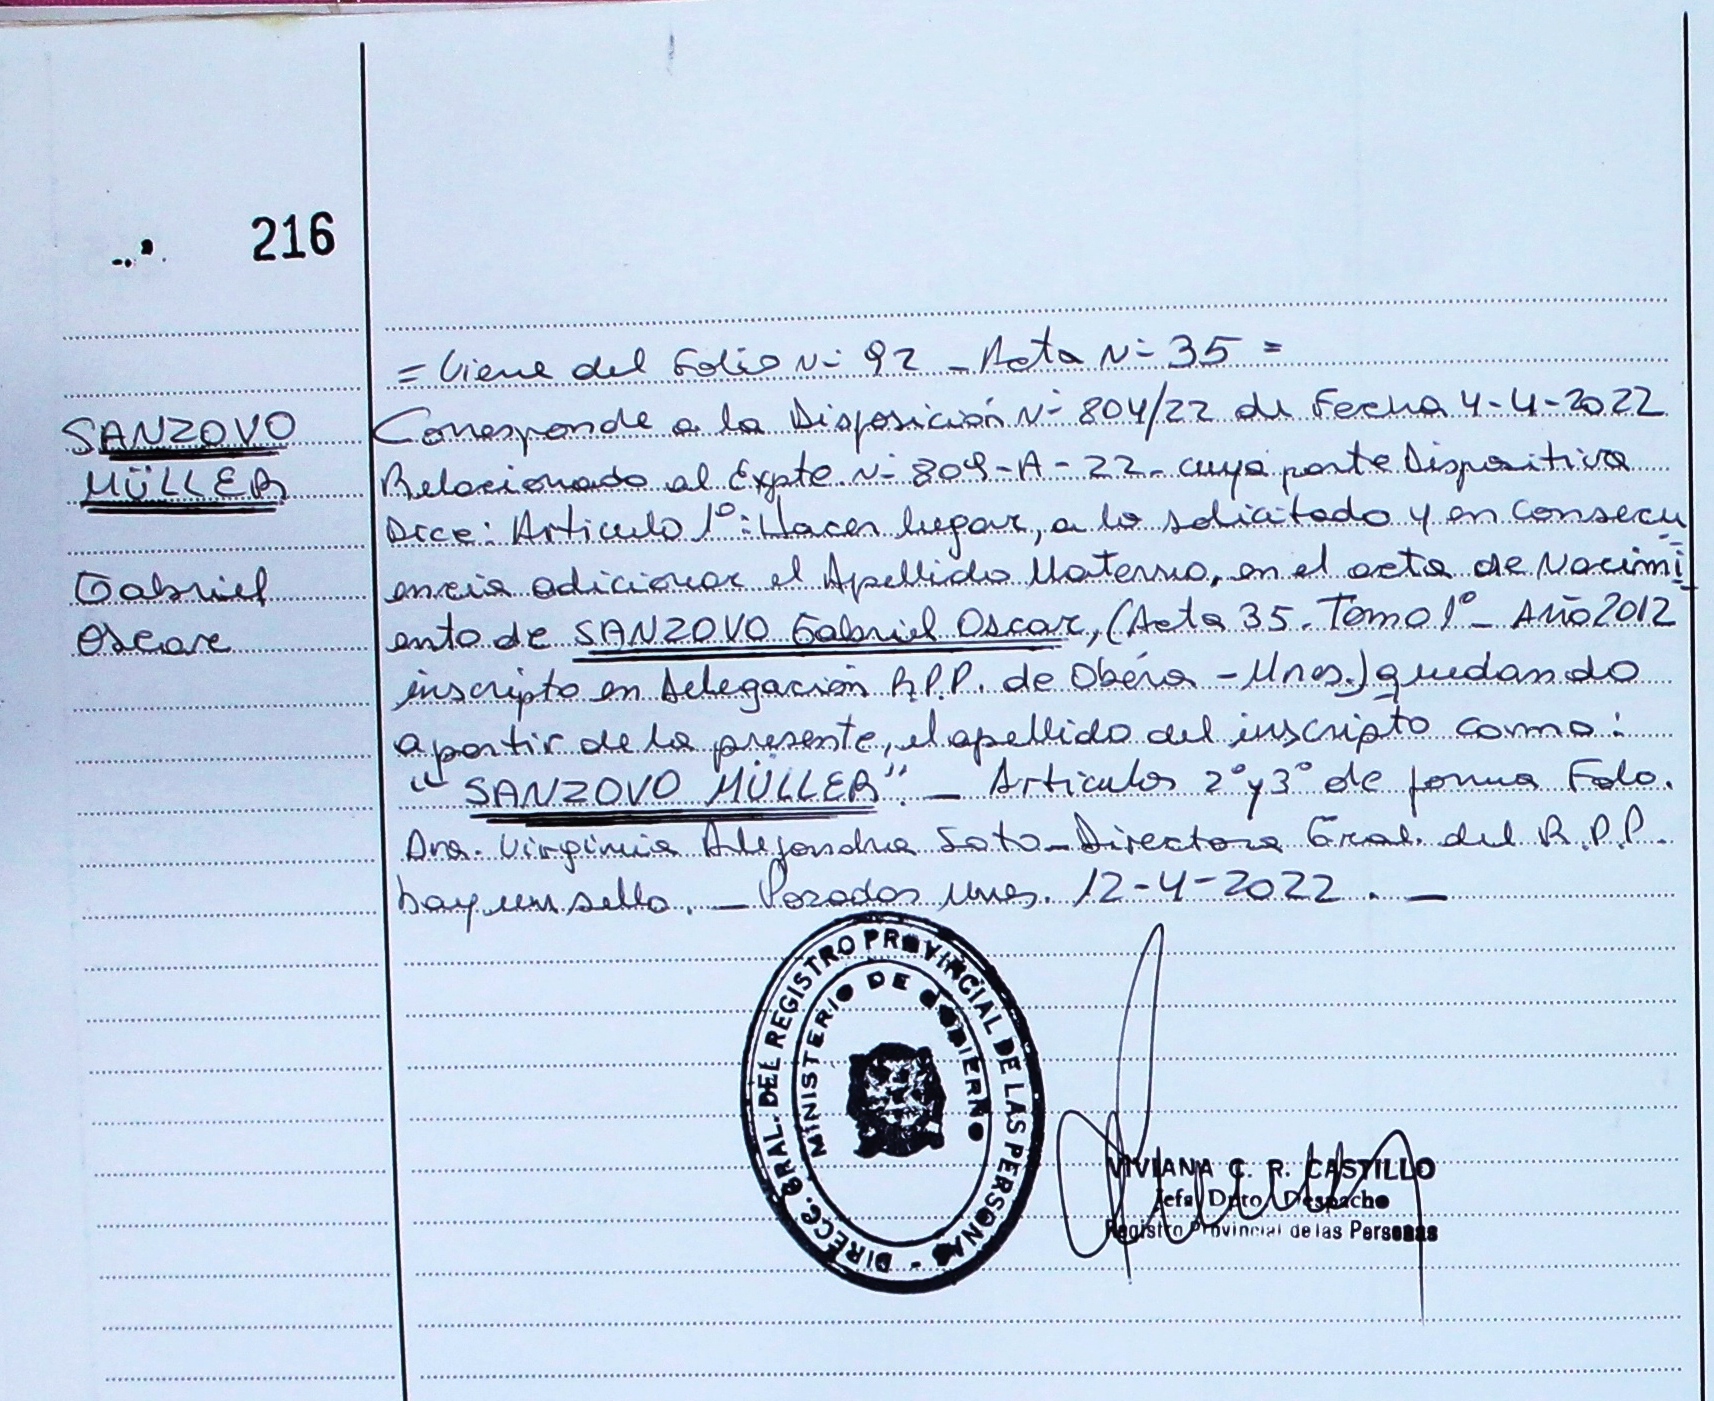 216
= Viene del Folio Nº 92 - Acta Nº 35 =
SANZOVO
MÜLLER
Gabriel
Oscar
Corresponde a la Disposición Nº 804/22 de Fecha 4-4-2022
Relacionado al Expte. Nº 809-A-22. cuya parte Dispositiva
Dice: Articulo 1º: Hacer lugar, a lo solicitado y en Consecu
encia adicionar el Apellido Materno, en el acta de Nacimi
ento de SANZOVO Gabriel Oscar, (Acta 35. Tomo 1º - Año 2012
inscripto en Delegación R.P.P. de Oberá - Mnes.) quedando
a partir de la presente, el apellido del inscripto como:
"SANZOVO MÜLLER". - Articulos 2º y 3º de forma Fdo.
Dra. Virginia Alejandra Soto - Directora Gral. del R.P.P.
hay un sello. - Posadas Mnes. 12-4-2022. -
DIRECC. GRAL. DEL REGISTRO PROVINCIAL DE LAS PERSONAS -
MINISTERIO DE GOBIERNO
VIVIANA C. R. CASTILLO
Jefa Dpto. Despacho
Registro Provincial de las Personas